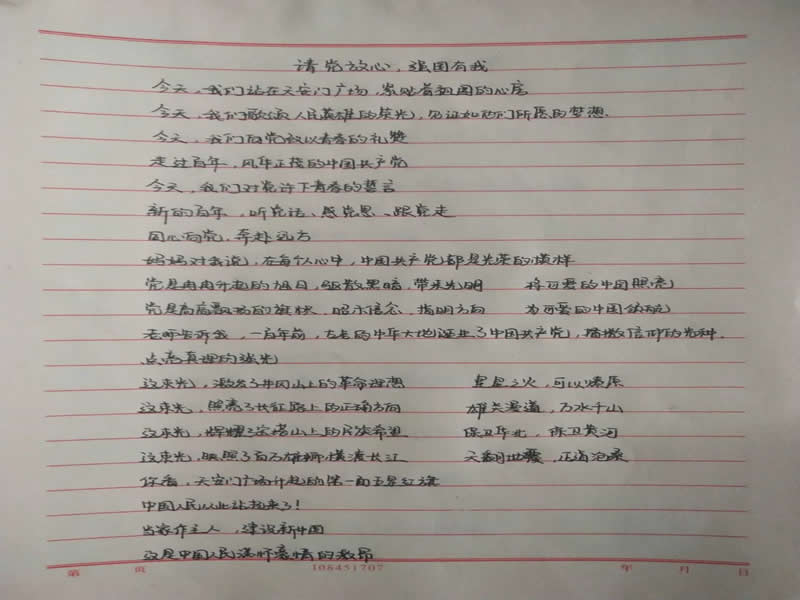 请党放心，强国有我
今天，我们站在天安门广场，紧贴着祖国的心房
今天，我们歌颂人民英雄的荣光，见证如他们所愿的梦想.
今天，我们向党致以青春的礼赞
走过百年，风华正茂的中国共产党
今天，我们对党许下青春的誓言
新的百年，听党话、感党恩、跟党走
同心向党，奔赴远方
妈妈对我说，在每个人心中，中国共产党都是光荣的模样
党是冉冉升起的旭日，驱散黑暗，带来光明 将可爱的中国照亮
党是高高飘扬的旗帜，昭示信念，指明方向 为可爱的中国领航
老师告诉我，一百年前，古老的中华大地诞生了中国共产党，播撒信仰的火种.
点亮真理的强光
这束光，激发了井冈山上的革命理想 星星之火，可以燎原
这束光，照亮了长征路上的正确方向 雄关漫道，万水千山
这束光，辉耀了宝塔山上的民族希望 保卫华北，保卫黄河
这束光，映照了百万雄狮横渡长江 天翻地覆，正道沧桑
你看，天安门广场升起的第一面五星红旗
中国人民从此站起来了！
当家作主人，建设新中国
这是中国人民满怀豪情的激昂
第 页 108451707 年 月 日